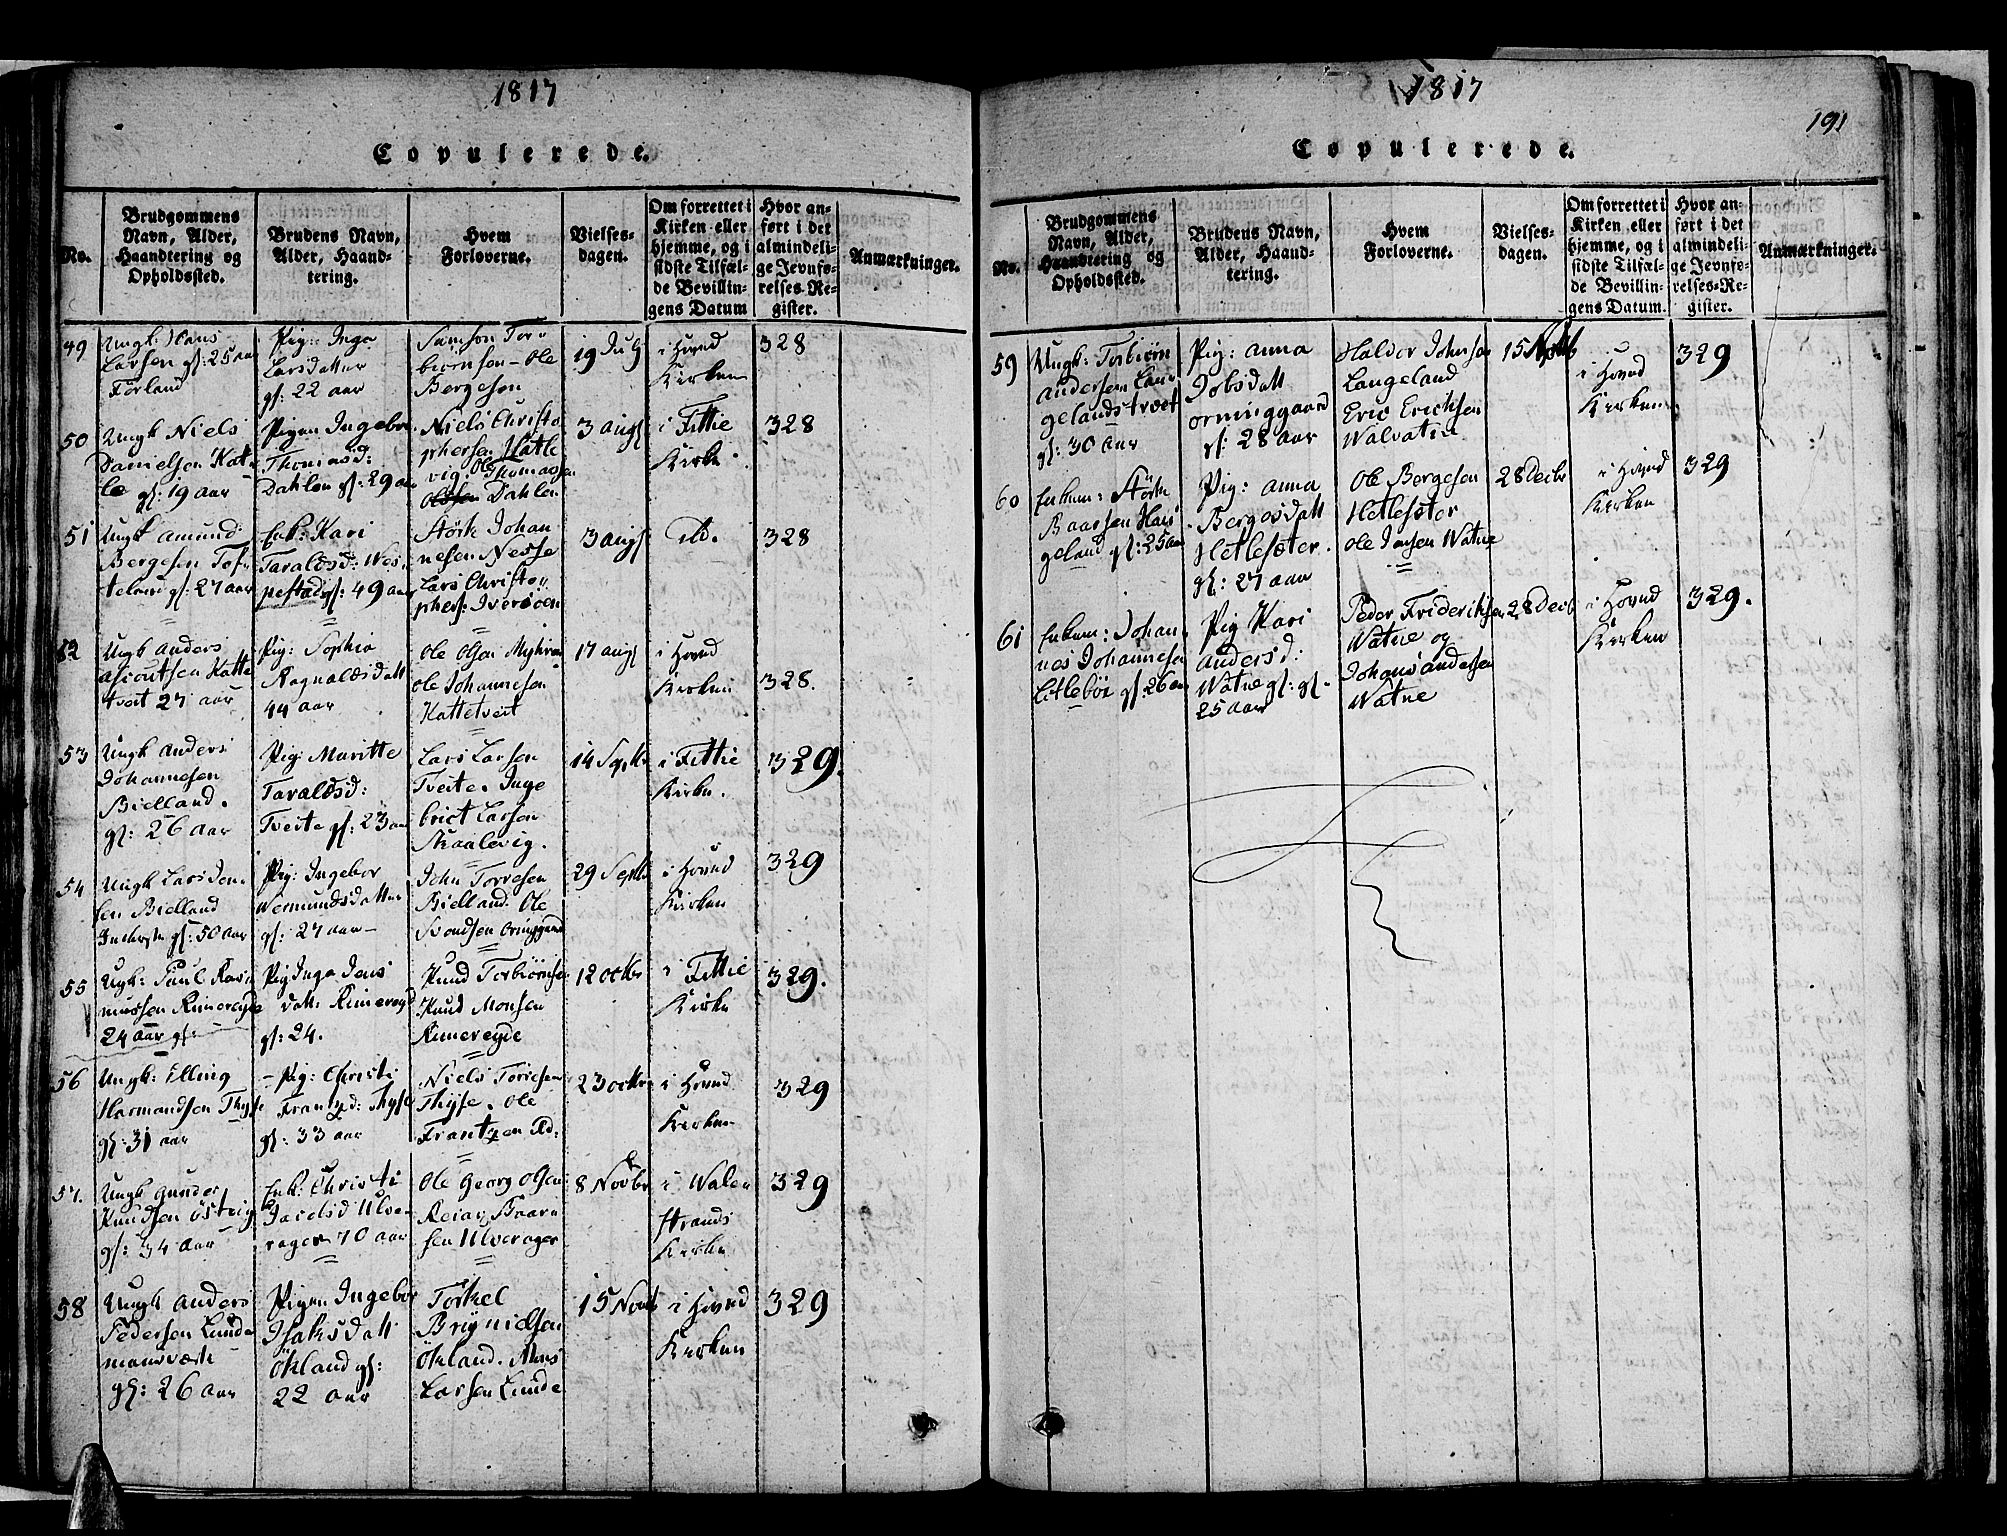 1817
Copulerede.
No.
Brudgommens
Navn, Alder,
Haandtering og
Opholdssted.
Brudens Navn,
Alder, Haand-
tering.
Hvem
Forloverne.
Vielses-
dagen.
Om forrettet i
Kirken eller
hjemme, og i
sidste Tilfæl-
de Bevillin-
gens Datum
Hvor an-
ført i det
almindeli-
ge Jevnfø-
relses-Re-
gister.
Anmærkninger.
49
Ungk: Hans
Larsen gl: 25 aar
Førland
Pig: Inga
Larsdatter
gl: 22 aar
Samson Tor-
biørnsen – Ole
Bergesen
19 July
i Hovud
Kirken
328
50
Ungk Niels
Danielsen Hat-
le gl: 19 aar
Pigen Ingebor
Thomasd:
Dahlen gl: 29 aar
Niels Christo
phersen Hatle
vig. Ole Thomassen
Dahlen
3 aug
i Fittie
Kirke
328
51
Ungk Amund
Bergesen Tof-
teland gl: 27 aar
Enk: Kari
Taraldsd: Wes-
pestad gl: 49 aar
Størk Johan-
nesen Nesse
Lars Christo-
phers: Iversöen
3 aug
D.
328
52
Ungk Anders
Hatte
tveit 27 aar
Pig: Sophia
Ragnaldsdatt
44 aar
Ole Olsen Myhren
Ole Johannesen
Hattetveit
17 aug
i Hovud
Kirken
328.
53
Ungk Anders
Johannesen
Bielland.
gl: 26 aar
Pig: Maritte
Taraldsd:
Tveite gl: 23 aar
Lars Larsen
Tveite. Inge
brict Larsen
Skaalevig.
14 Septb
i Fittie
Kirke.
329.
54
Ungk Lars Jen-
sen Bielland
gl: 50 aar
Pig: Ingebor
Wermundsdatter
gl: 27 aar –
John Torresen
Bielland. Ole
Svendsen Orninggaard
29 Septb
i Hovud
Kirken
329
55
Ungk: Paul Ras-
mussen Rimereyde
24 aar gl:
Pig Inga Jens
datt: Rimereyd
gl: 24.
Knud Torbiörnsen
Knud Monsen
Rimereyde
12 octbr
i Fittie
Kirke
329.
56
Ungk: Elling
Harmandsen Thyse
gl: 31 aar
– Pig: Christi
Frantzd: Thyse
gl: 33 aar
Niels Toresen
Thyse. Ole
Frantzen Ibd:
23 octbr
i Hovud
Kirken
329
57.
Ungk Gunder
Knudsen Östvig
gl: 34 aar
Enk: Christi
Ulve-
rager 70 aar
Ole Georg Olsen
Reiar Baar-
sen Ulverager
8 Novbr
i Walen
strands
Kirke
329
58
Ungk Anders
Pedersen Lunde
mansverk
gl: 26 aar
Pigen Ingebor
Isaksdatt
Ökland gl:
22 aar
Torkel
Brynielsen
Ökland. Mons
Larsen Lunde
15 Novb
i Hovud
Kirken
329
1817
191
Copulerede.
No.
Brudgommens
Navn, Alder,
Haandtering og
Opholdssted.
Brudens Navn,
Alder, Haand-
tering.
Hvem
Forloverne.
Vielses-
dagen.
Om forrettet i
Kirken eller
hjemme, og i
sidste Tilfæl-
de Bevillin-
gens Datum.
Hvor an-
ført i det
almindeli-
ge Jevnfø-
relses-Re-
gister.
Anmærkninger.
59
Ungk: Torbiörn
Andersen Lan-
gelandstræet
gl: 30 aar
Pig: Anna
Jobsdatt
orninggaard
gl: 28 aar
Haldor Johnsen
Langeland
Eric Ericksen
Walvatne
15 Novb
i Hovud
Kirken
329
60
Enkem: Störk
Baarsen Haus
geland gl: 25 aar
Pig: Anna
Bergesdatt
Hetlesæter.
gl: 27 aar
Ole Bergesen
Hetlesæter
Ole Jensen Watne
28 Decbr
i Hovud
Kirken
329
61
Enkem: Johan-
nes Johannesen
Letlebøe gl: 26 aar
Pig Kari
Andersd:
Watne gl: gl-
25 aar
Peder Frideriksen
Watne og
Johans Andersen
Watne
28 Decb
i Hovud
Kirken
329.